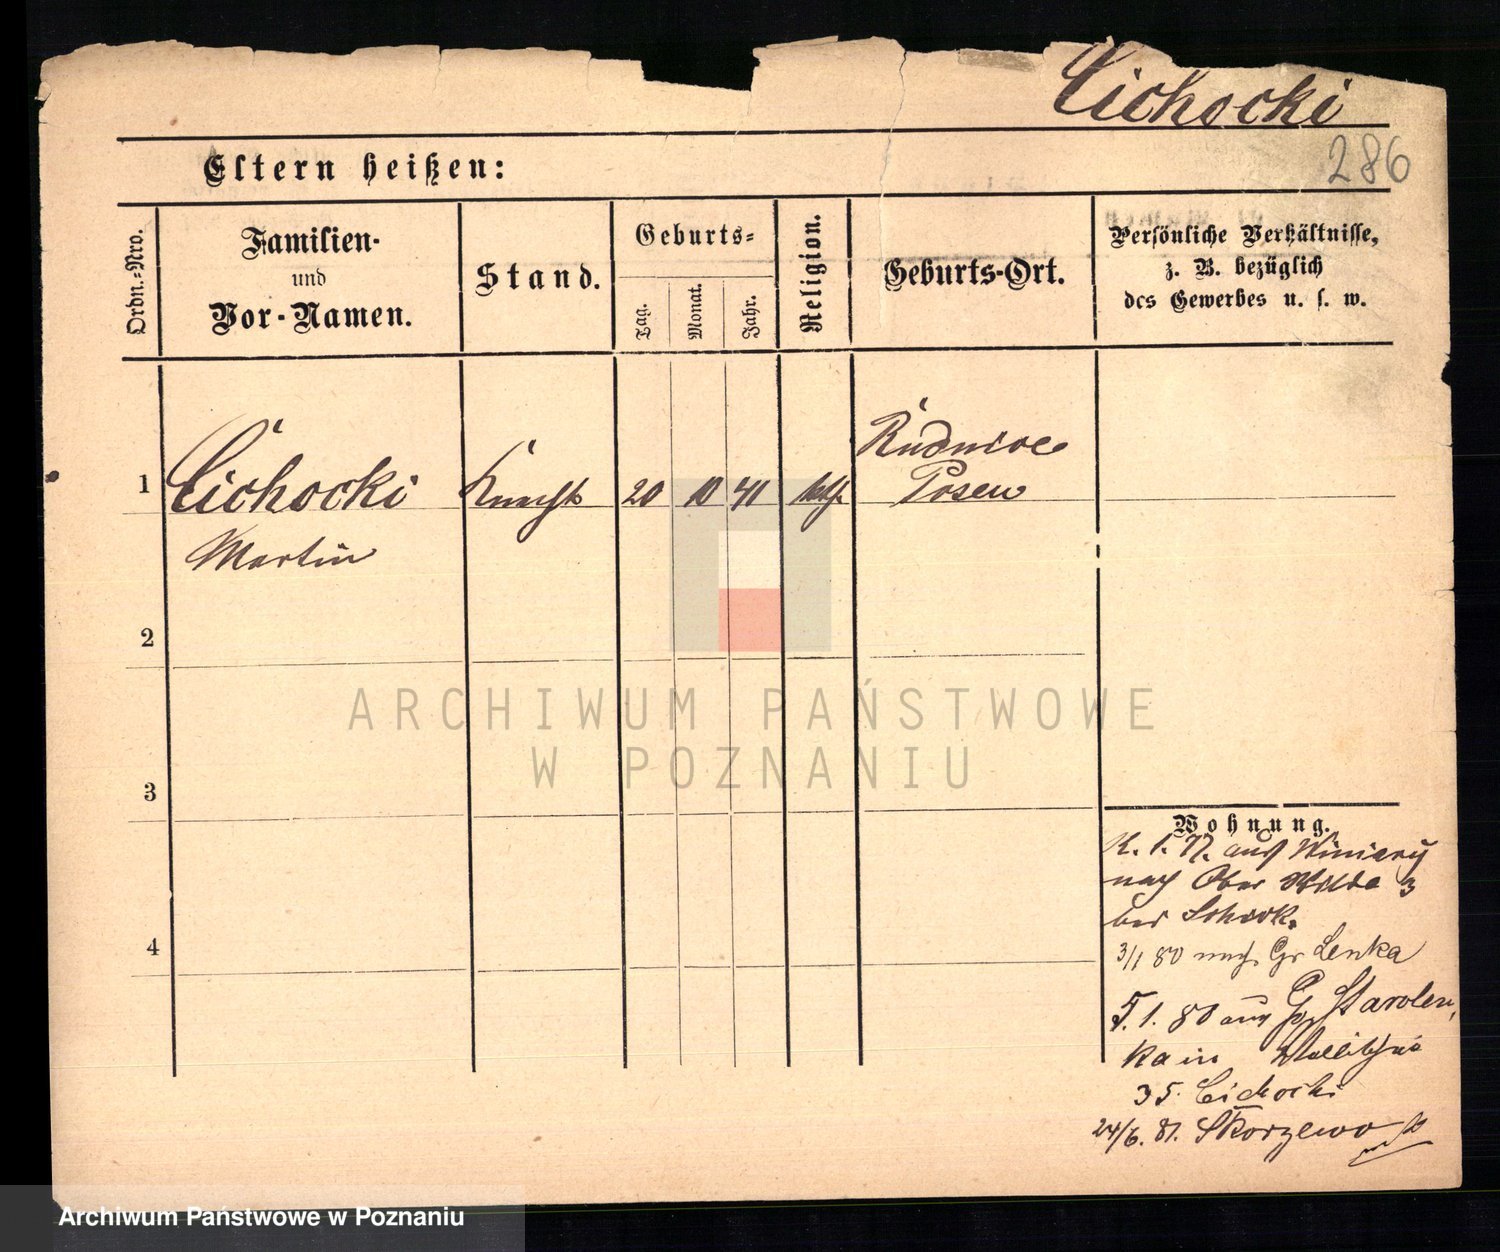 Cichocki
286
Eltern heißen:
Ordn.-Nro.
Familien-
und
Vor-Namen.
Stand.
Geburts-
Tag.
Monat.
Jahr.
Religion.
Geburts-Ort.
Persönliche Verhältnisse,
z. B. bezüglich
des Gewerbes u. s. w.
1
Cichocki
Martin
Knecht
20
10
41
kath.
Rudnice
Posen
2
3
4
Wohnung.
1. 77. aus Winiary
nach Ober Wilda 3
bei
3/1 80 nach Gr Lenka
5. 1. 80 aus Starolen,
ka in Wallischei
35. Cichocki
24/6. 81. Skorzewo
ARCHIWUM PAŃSTWOWE
W POZNANIU
Archiwum Państwowe w Poznaniu